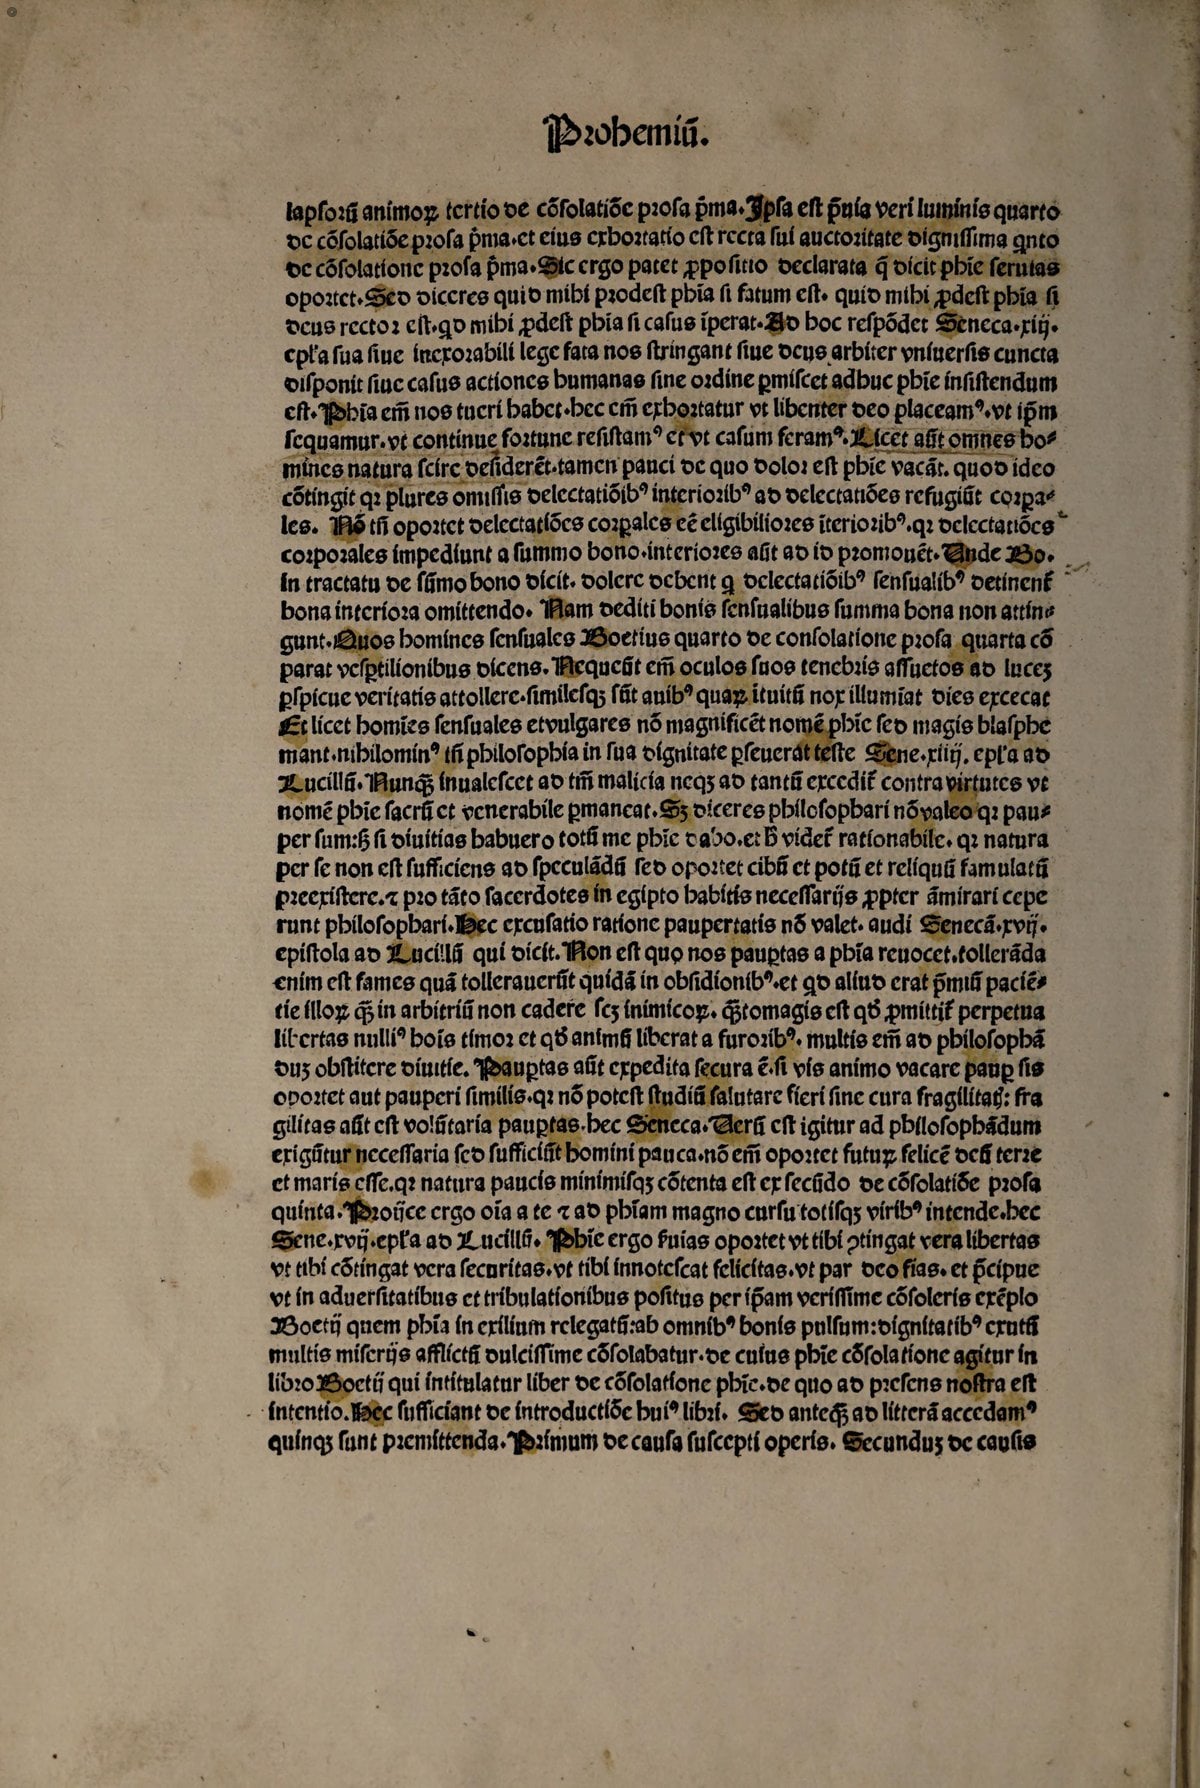 Prohemiū.
lapsorū animoꝝ tertio de cōsolatiōe prosa p̄ma. Ipsa est p̄uia veri luminis quarto
de cōsolatiōe prosa p̄ma. et eius exhortatio est recta sui auctoritate dignissima qnto
de cōsolatione prosa p̄ma. Sic ergo patet ꝓpositio declarata q̄ dicit phīe seruias
oportet. Sed diceres quid mihi prodest phīa si fatum est. quid mihi ꝓdest phīa si
deus rector est. qd mihi ꝓdest phīa si casus īperat. Ad hoc respōdet Seneca. xiij.
epl'a sua siue inexorabili lege fata nos stringant siue deus arbiter vniuersis cuncta
disponit siue casus actiones humanas sine ordine ꝑmiscet adhuc phīe insistendum
est. Phīa em̄ nos tueri habet. hec em̄ exhortatur vt libenter deo placeamꝰ. vt ip̄m
sequamur. vt continue fortune resistamꝰ et vt casum feramꝰ. Licet aūt omnes ho⸗
mines natura scire desiderēt. tamen pauci de quo dolor est phīe vacāt. quod ideo
cōtingit qꝛ plures omissis delectatiōibꝰ interioribꝰ ad delectatiōes refugiūt corpa⸗
les. Nō tn̄ oportet delectatiōes corpales eē eligibiliores īterioribꝰ. qꝛ delectatiōes
corporales impediunt a summo bono. interiores aūt ad id promouēt. Unde Bo.
in tractatu de sūmo bono dicit. dolere debent q delectatiōibꝰ sensualibꝰ detinent᷑
bona interiora omittendo. Nam dediti bonis sensualibus summa bona non attin⸗
gunt. Quos homines sensuales Boetius quarto de consolatione prosa quarta cō
parat vesꝑtilionibus dicens. Nequeūt em̄ oculos suos tenebris assuetos ad luceꝫ
ꝑspicue veritatis attollere. similesqꝫ sūt auibꝰ quaꝝ ītuitū nox illumīat dies excecat
Et licet homīes sensuales etvulgares nō magnificēt nomē phīe sed magis blasphe
mant. nihilominꝰ tn̄ philosophia in sua dignitate ꝑseuerat teste Sene. xiiij. epl'a ad
Lucillū. Nunqꝫ̄ inualescet ad tm̄ malicia neqꝫ ad tantū excedit᷑ contra virtutes vt
nomē phīe sacrū et venerabile ꝑmaneat. Sꝫ diceres philosophari nō valeo qꝛ pau⸗
per sum: ꝗ si diuitias habuero totū me phīe dabo. et ħ videt᷑ rationabile. qꝛ natura
per se non est sufficiens ad speculādū sed oportet cibū et potū et reliquū famulatū
preexistere. ⁊ pro tāto sacerdotes in egipto habitis necessarijs ꝓpter āmirari cepe
runt philosophari. Hec excusatio ratione paupertatis nō valet. audi Senecā. xvij.
epistola ad Lucillū qui dicit. Non est quo nos pauꝑtas a phīa reuocet. tollerāda
enim est fames quā tollerauerūt quidā in obsidionibꝰ. et qd aliud erat p̄miū paciē⸗
tie illoꝝ qꝫ̄ in arbitriū non cadere seꝫ inimicoꝝ. qꝫ̄tomagis est qd̄ ꝓmittit᷑ perpetua
libertas nulliꝰ hois timor et qd̄ animū liberat a furoribꝰ. multis em̄ ad philosophā
duꝫ obstitere diuitie. Pauꝑtas aūt expedita secura ē. si vis animo vacare pauꝑ sis
oportet aut pauperi similis. qꝛ nō potest studiū salutare fieri sine cura fragilitatꝭ: fra
gilitas aūt est volūtaria pauꝑtas. hec Seneca. Uerū est igitur ad philosophādum
exigūtur necessaria sed sufficiūt homini pauca. nō em̄ oportet futuꝝ felicē deū terre
et maris esse. qꝛ natura paucis minimisqꝫ cōtenta est ex secūdo de cōsolatiōe prosa
quinta. Proijce ergo oīa a te ⁊ ad phīam magno cursu totisqꝫ viribꝰ intende. hec
Sene. xvij. epl'a ad Lucillū. Phīe ergo s̄uias oportet vt tibi ꝯtingat vera libertas
vt tibi cōtingat vera securitas. vt tibi innotescat felicitas. vt par deo fias. et p̄cipue
vt in aduersitatibus et tribulationibus positus per ip̄am verissime cōsoleris exēplo
Boetij quem phīa in exilium relegatū: ab omnibꝰ bonis pulsum: dignitatibꝰ exutū
multis miserijs afflictū dulcissime cōsolabatur. de cuius phīe cōsolatione agitur in
libro Boetij qui intitulatur liber de cōsolatione phīe. de quo ad presens nostra est
intentio. Hec sufficiant de introductiōe huiꝰ libri. Sed anteqꝫ̄ ad litterā accedamꝰ
quinqꝫ sunt premittenda. Primum de causa suscepti operis. Secunduꝫ de causis